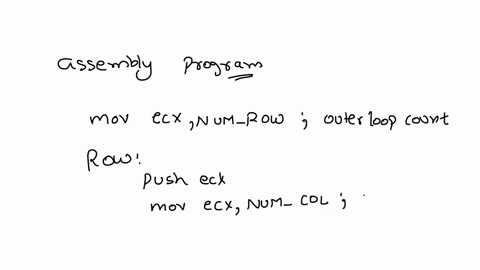 assembly program
mov ecx, NUM_ROW ; outer loop count
Row:
push eck
mov ecx, NUM_COL ;